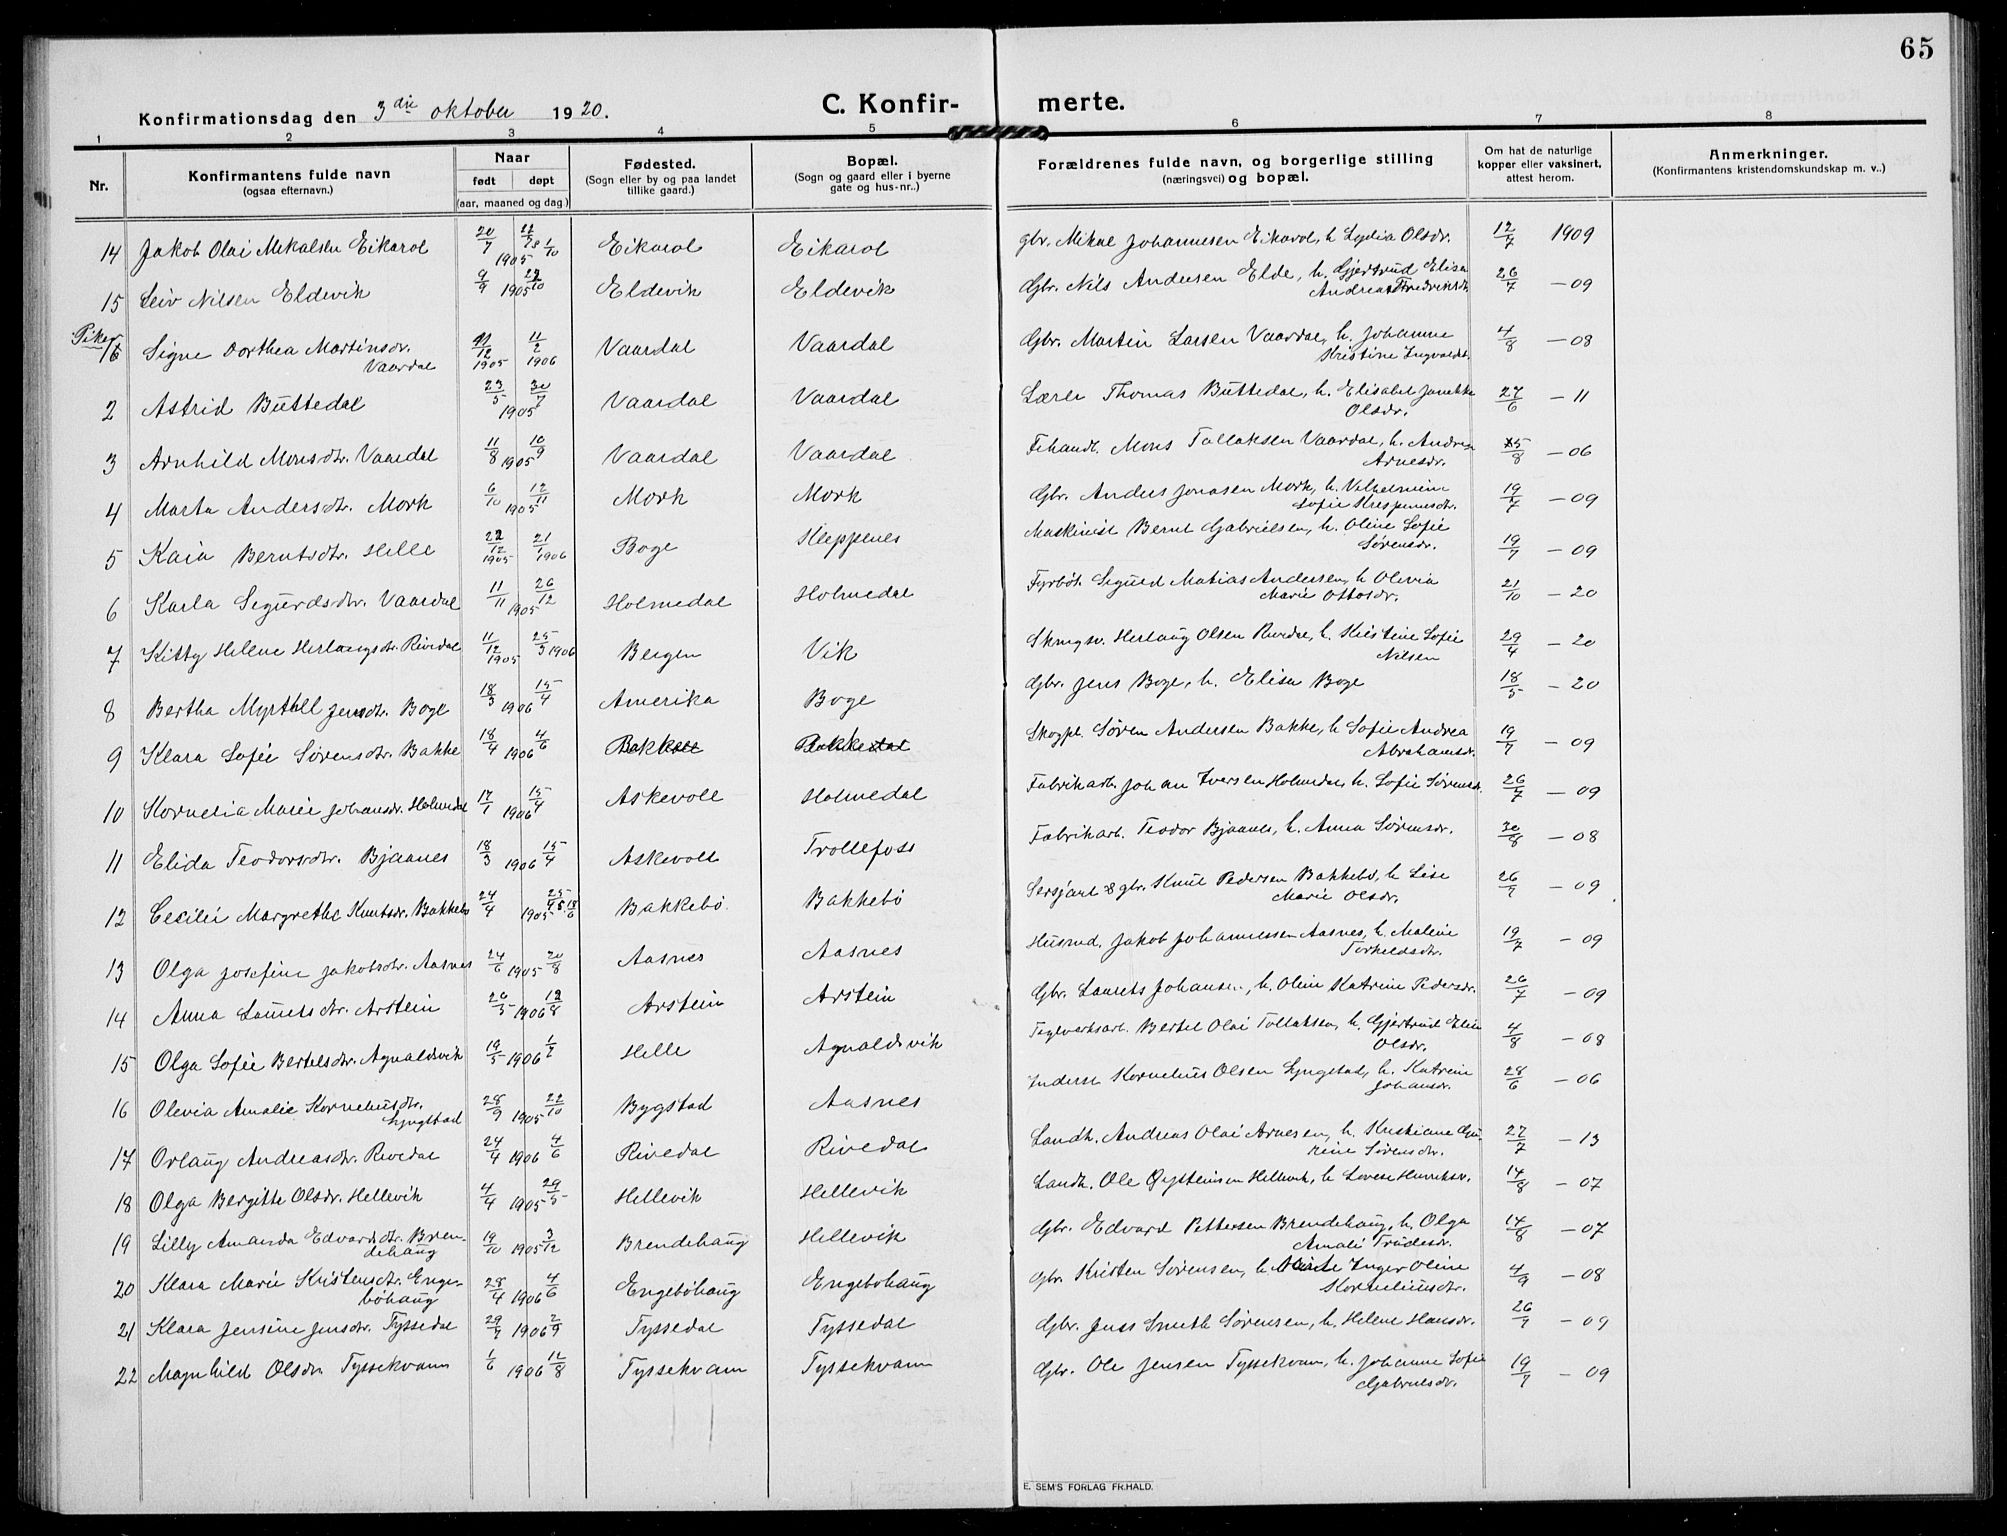 65
Konfirmationsdag den 3die oktober 1920.
C. Konfirmerte.
1 2 3 4 5 6 7 8
Nr.
Konfirmantens fulde navn
(ogsaa efternavn.)
Naar
født døpt
(aar, maaned og dag)
Fødested.
(Sogn eller by og paa landet
tillike gaard.)
Bopæl.
(Sogn og gaard eller i byerne
gate og hus-nr..)
Forældrenes fulde navn, og borgerlige stilling
(næringsvei) og bopæl.
Om hat de naturlige
kopper eller vaksinert,
attest herom.
Anmerkninger.
(Konfirmantens kristendomskundskap m. v..)
14 Jakob Olai Mikalsen Eikarol 20/7 1905 Eikarol Eikarol gbr. Mikal Johannesen Eikarol, h. Lydia Olsdr. 12/7 1909
15 Leiv Nilsen Eldevik 9/9 1905 22/10 Eldevik Eldevik Gbr. Nils Andersen Elde, h. Gjertrud Elisa 26/7 — 09
Andreas Fredriksdt.
Piker
1 Signe Dorthea Martinsdr. 11/12 1905 11/2 1906 Vaardal Vaardal Gbr. Martin Larsen Vaardal, h. Johanne 4/8 — 08
Vaardal Kristine Ingvaldsdt.
2 Astrid Buttedal 23/5 1905 30/7 Vaardal Vaardal Lærer Thomas Buttedal, h. Elisabet Janikke 27/6 — 11
Olsdr.
3 Arnhild Monsdtr. Vaardal 11/8 1905 10/9 Vaardal Vaardal Fehandl. Mons Tollaksen Vaardal, h. Andrea 5/8 — 06
Arnesdr.
4 Marta Andersdtr. Mork 6/10 1905 12/11 Mork Mork Gbr. Anders Jonasen Mork, h. Vilhelmine 19/7 — 09
Sofie Krespinusdtr.
5 Kaia Berntsdtr. Helle 22/12 1905 21/1 1906 Boge Kleppenes Maskinist Bernt Gabrielsen, h. Oline Sofie 19/7 — 09
Sørensdr.
6 Karla Sigurdsdtr. Vaardal 11/11 1905 26/12 Holmedal Holmedal Fyrbøt. Sigurd Matias Andersen, h. Olivia 21/10 — 20
Marie Ottosdr.
7 Kitty Helene Herlaugsdtr. Rivedal 11/12 1905 25/3 1906 Bergen Vik Herlaug Olsen Rivedal, h. Kristine Sofie 29/4 — 20
Nilsen
8 Bertha Myrthll Jensdtr. Boge 18/3 1906 15/4 Amerika Boge Gbr. Jens Boge, h. Elisa Boge 18/5 — 20
9 Klara Sofie Sørensdtr. Bakke 18/4 1906 4/6 Skogpl. Søren Andersen Bakke, h. Sofie Andrea 19/7 — 09
Abrahamsdr.
10 Kornelia Marie Johansdr. Holmedal 17/1 1906 15/4 Askevoll Holmedal Fabrikarb. Johan Iversen Holmedal, h. Sofie Sørensdr. 26/7 — 09
11 Elida Teodorsdtr. Bjaanes 18/3 1906 15/4 Askevoll Trollefoss Fabrikarb. Teodor Bjaanes, h. Anna Sørensdr. 30/8 — 08
12 Cecilie Margrethe Knutsdr. Bakkebø 24/4 1905 Bakkebø Bakkebø Sersjant & gbr. Knut Pedersen Bakkebø, h. Lise 26/7 — 09
Marie Olsdr.
13 Olga Josefine Jakobsdtr. Aasnes 24/6 1905 20/8 Aasnes Aasnes Husmd. Jakob Johannessen Aasnes, h. Malene 19/7 — 09
Torkeldsdtr.
14 Anna Lauritsdtr. Arstein 26/5 1906 12/8 Arstein Arstein Gbr. Laurits Johansen, h. Oline Katrine Pedersdr. 26/7 — 09
15 Olga Sofie Bertelsdtr. Agnaldsvik 19/5 1906 1/7 Helle Agnaldsvik Teglverksarb. Bertel Olai Tollaksen, h. Gjertrud Elin 4/8 — 08
Olsdr.
16 Olevia Amalie Korneliusdtr. 28/9 1905 22/10 Bygstad Aasnes Inderst Kornelius Olsen Lyngstad, h. Katrine 28/6 — 06
Lyngstad Johansdr.
17 Orlaug Andreasdtr. Rivedal 24/4 1906 4/6 Rivedal Rivedal Landh. Andreas Olai Arnesen, h. Kristiane 27/7 — 13
Sørensdtr.
18 Olga Bergitte Olsdr. Hellevik 4/4 1905 29/5 Hellevik Hellevik Landh. Ole Øysteinsen Hellevik, h. Lovise Henriksdr. 14/8 — 07
19 Lilly Amanda Edvardsdtr. Bren- 19/10 1905 3/12 Brendehaug Hellevik Gbr. Edvard Pettersen Brendehaug, h. Olga 14/8 — 07
dehaug Amalie Trudesdr.
20 Klara Marie Kristensdtr. Enge- 28/4 1906 4/6 Engebøhaug Engebøhaug Gbr. Kristen Sørensen, h. Inger Oline 4/9 — 08
bøhaug Korneliusdtr.
21 Klara Jensine Jensdtr. Tyssedal 29/7 1906 2/9 Tyssedal Tyssedal Gbr. Jens Smith Sørensen, h. Helene Hansdr. 26/7 — 09
22 Magnhild Olsdr. Tyssekvam 1/6 1906 12/8 Tyssekvam Tyssekvam Gbr. Ole Jensen Tyssekvam, h. Johanne Sofie 19/7 — 09
Gabrielsdr.
E. SEM'S FORLAG FR.HALD.